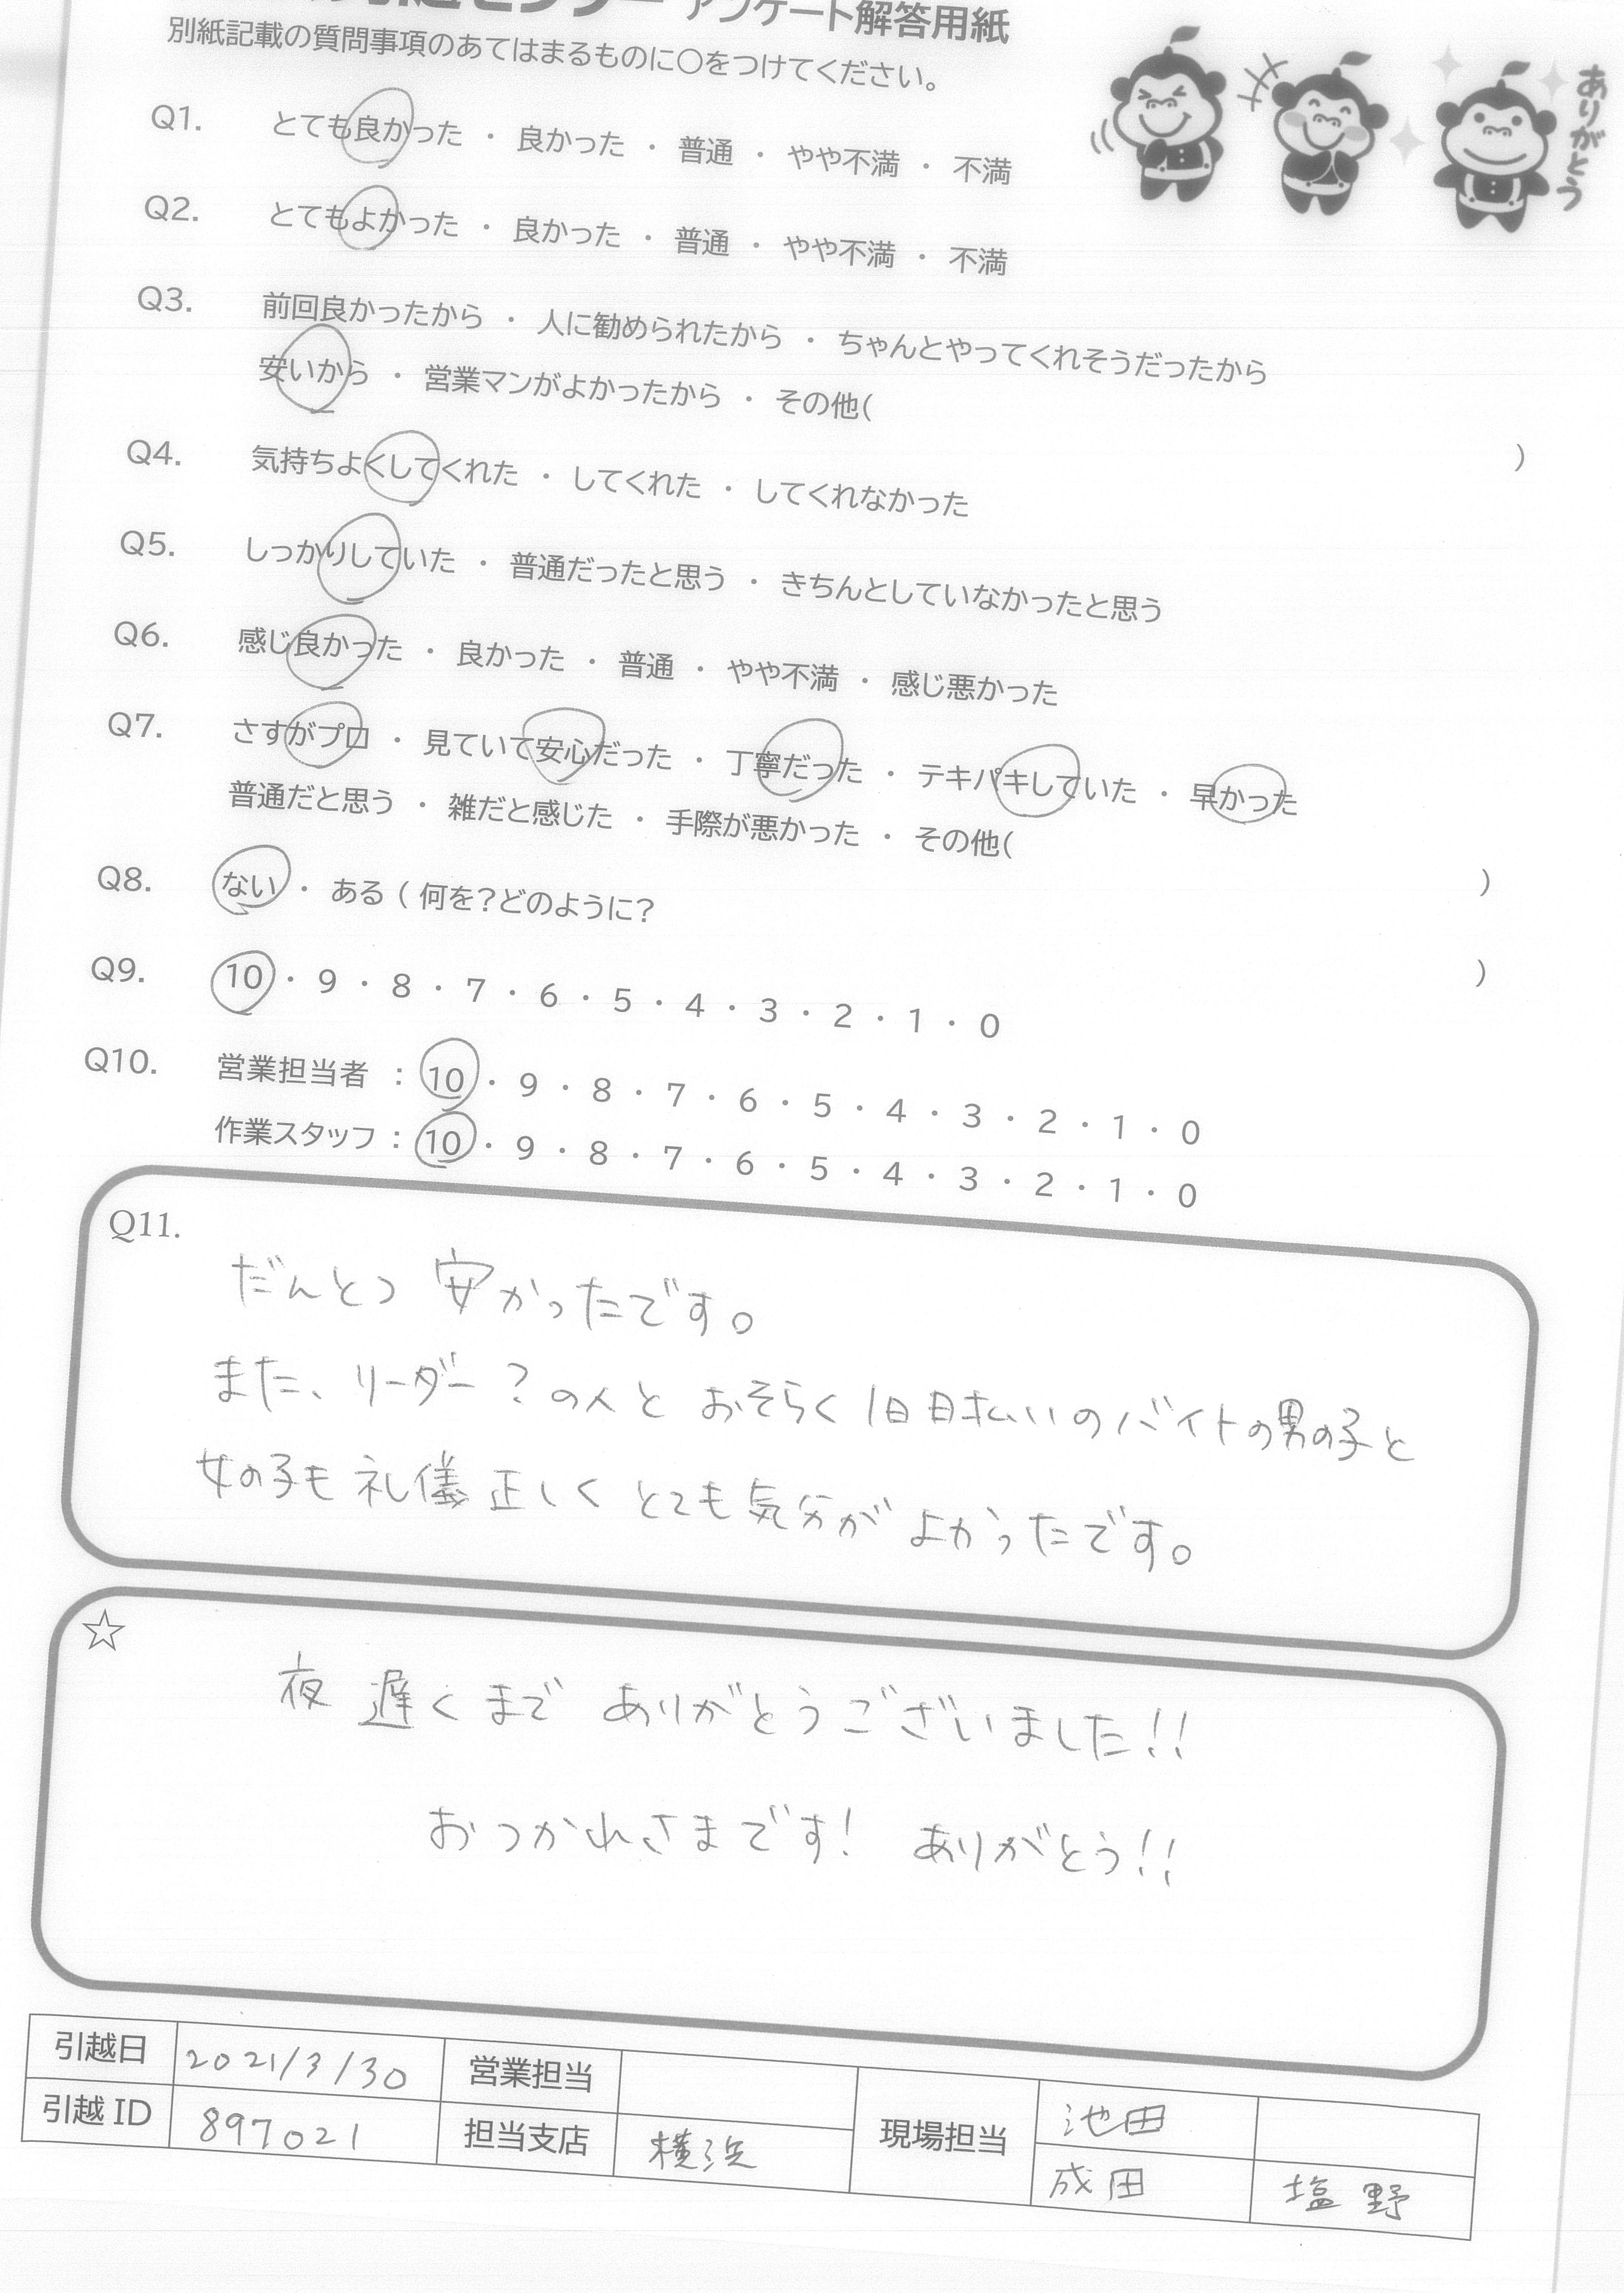 アンケート解答用紙
別紙記載の質問事項のあてはまるものに○をつけてください。
ありがとう
Q1. とても良かった ・ 良かった ・ 普通 ・ やや不満 ・ 不満
Q2. とてもよかった ・ 良かった ・ 普通 ・ やや不満 ・ 不満
Q3. 前回良かったから ・ 人に勧められたから ・ ちゃんとやってくれそうだったから
安いから ・ 営業マンがよかったから ・ その他( )
Q4. 気持ちよくしてくれた ・ してくれた ・ してくれなかった
Q5. しっかりしていた ・ 普通だったと思う ・ きちんとしていなかったと思う
Q6. 感じ良かった ・ 良かった ・ 普通 ・ やや不満 ・ 感じ悪かった
Q7. さすがプロ ・ 見ていて安心だった ・ 丁寧だった ・ テキパキしていた ・ 早かった
普通だと思う ・ 雑だと感じた ・ 手際が悪かった ・ その他( )
Q8. ない ・ ある ( 何を?どのように? )
Q9. 10 ・ 9 ・ 8 ・ 7 ・ 6 ・ 5 ・ 4 ・ 3 ・ 2 ・ 1 ・ 0
Q10. 営業担当者 : 10 ・ 9 ・ 8 ・ 7 ・ 6 ・ 5 ・ 4 ・ 3 ・ 2 ・ 1 ・ 0
作業スタッフ : 10 ・ 9 ・ 8 ・ 7 ・ 6 ・ 5 ・ 4 ・ 3 ・ 2 ・ 1 ・ 0
Q11.
だんとつ 安かったです。
また、リーダー?の人と おそらく 1日日払いのバイトの男の子と
女の子も 礼儀 正しく とても気分が よかったです。
☆
夜 遅くまで ありがとうございました!!
おつかれさまです! ありがとう!!
引越日 2021/3/30 営業担当 現場担当 池田
引越ID 897021 担当支店 横浜 成田 塩野